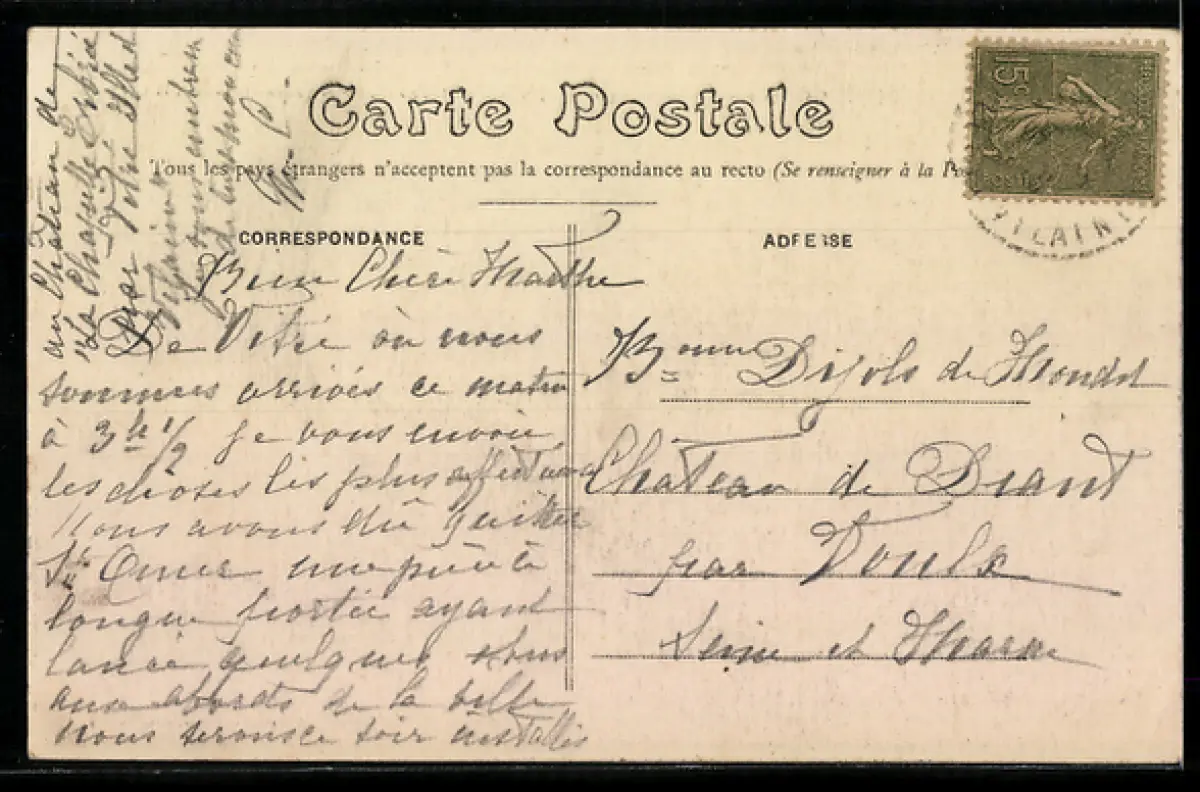 Carte Postale
Tous les pays étrangers n'acceptent pas la correspondance au recto (Se renseigner à la Po
CORRESPONDANCE
Bien Chère Marthe
De Vitré où nous
sommes arrivés ce matin
à 3h 1/2 je vous envoie
les choses les plus affectueuses
Nous avons dû quitter
St Omer une pièce à
longue portée ayant
lancé quelques obus
aux abords de la ville
Nous serons ce soir installés
au Château de
"La Chapelle Erbrée"
par
Vilaine"
ADRESSE
Bonne Dijols de
Chateau de Diant
par Voulx
Seine et Marne
15c
VILAINE